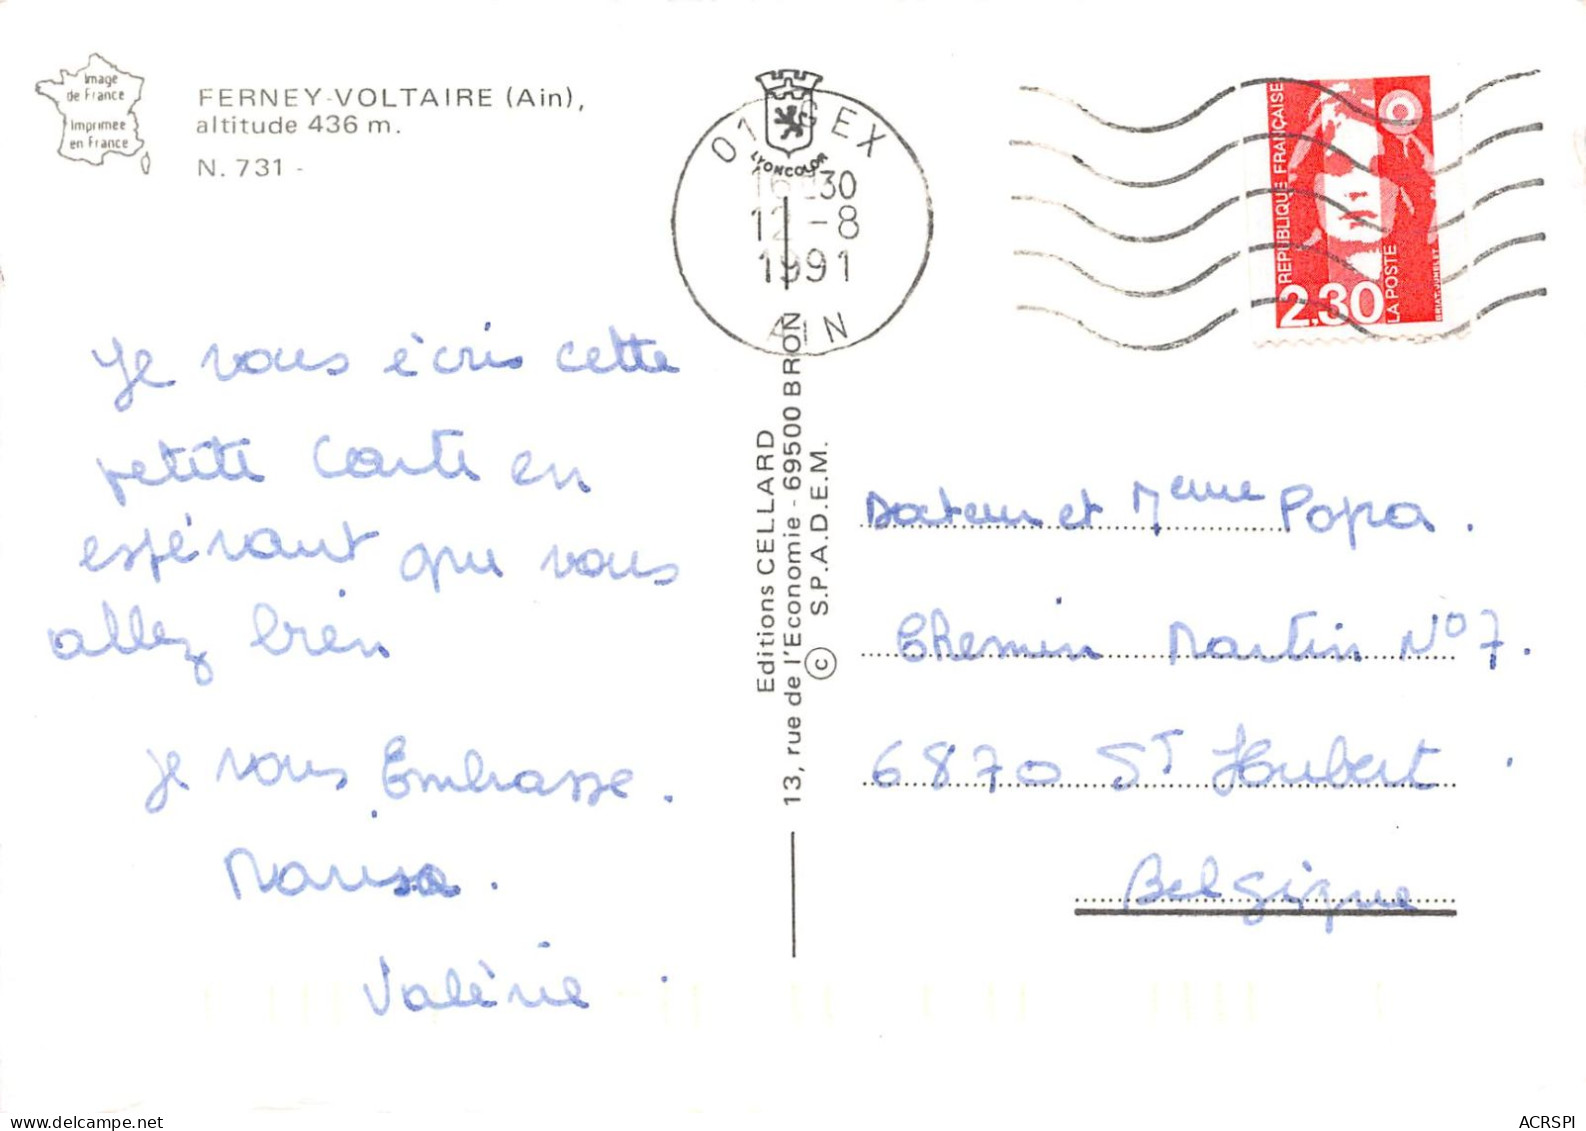 Image
de France
Imprimee
en France
FERNEY-VOLTAIRE (Ain),
altitude 436 m.
N. 731 -
01 GEX
LYONCOLOR
16 30
12 -8
1991
AIN
REPUBLIQUE FRANÇAISE
2,30
LA POSTE
BRIAT-JUMELET
Je vous écris cette
petite carte en
espérant que vous
allez bien
je vous Embrasse.
Marisa.
Valérie.
Editions CELLARD
13, rue de l'Economie - 69500 BRON
© S.P.A.D.E.M.
Docteur et Meme Popa.
Chemin Martin N° 7.
6870 ST Hubert.
Belgique
ACRSPI